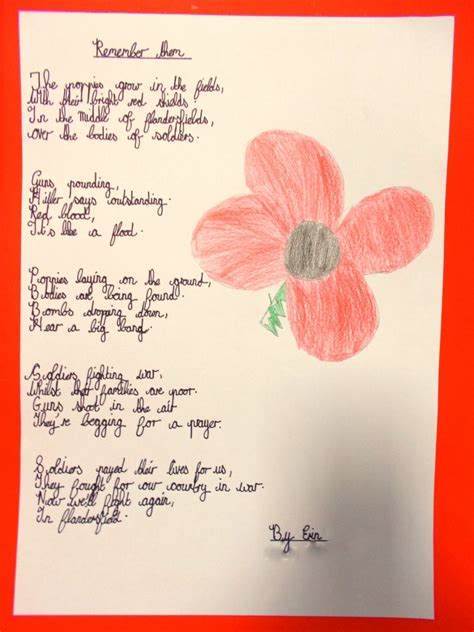 Remember them
The poppies grow in the fields,
With their bright red shields.
In the middle of flandersfields,
over the bodies of soldiers.
Guns pounding,
Hitler says outstanding.
Red blood,
It's like a flood.
Poppies laying on the ground,
Bodies are being found.
Bombs dropping down,
Hear a big bang.
Soldiers fighting war,
Whilst their families are poor.
Guns shoot in the air
They're begging for a prayer.
Soldiers payed their lives for us,
They fought for our country in war.
Now we'll fight again,
In flandersfield.
By Erin